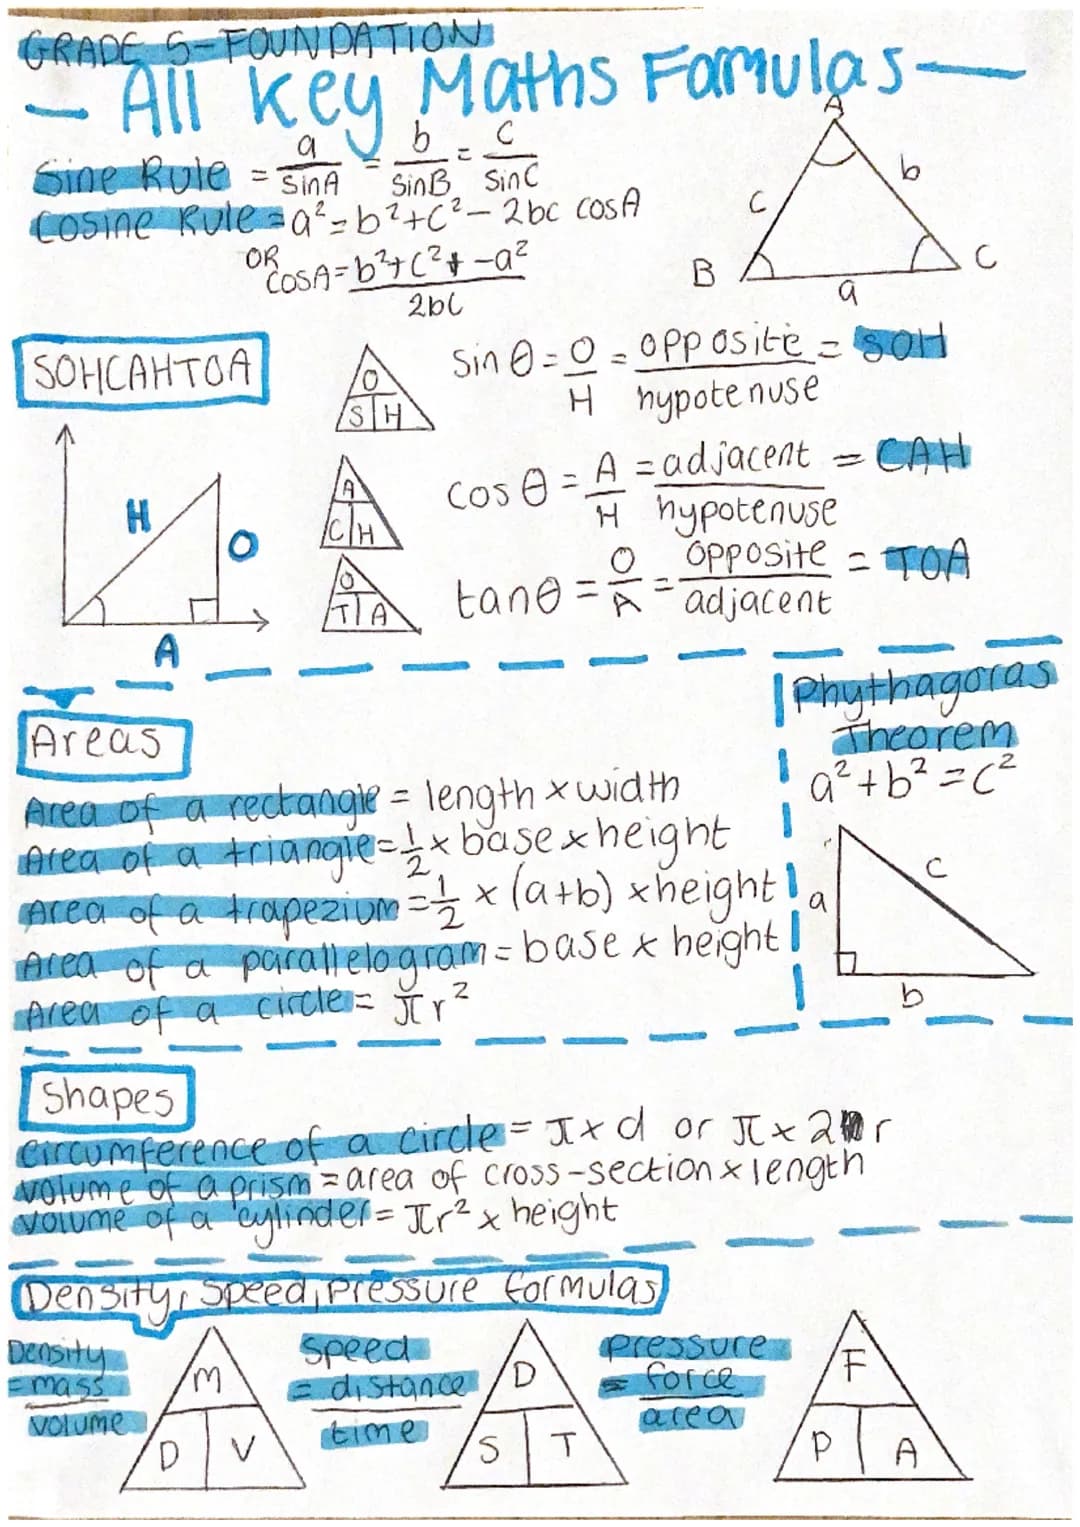 GRADE 5-FOUNDATION
- All Key Maths Formulas -
Sine Rule = a/SinA = b/SinB = c/SinC
Cosine Rule = a² = b² + c² - 2bc cosA
OR cosA = b² + c² - a² / 2bc
A
b
c
B
C
a
SOHCAHTOA
H
O
A
O
S H
A
C H
O
T A
Sin θ = O/H = opposite/hypotenuse = SOH
cos θ = A/H = adjacent/hypotenuse = CAH
tan θ = O/A = opposite/adjacent = TOA
Areas
Area of a rectangle = length x width
Area of a triangle = 1/2 x base x height
Area of a trapezium = 1/2 x (a+b) x height
Area of a parallelogram = base x height
Area of a circle = πr²
Phythagoras
Theorem
a² + b² = c²
a
c
b
Shapes
circumference of a circle = π x d or π x 2 r
volume of a prism = area of cross-section x length
volume of a cylinder = πr² x height
Density, Speed, Pressure formulas
Density
= mass
volume
M
D V
Speed
= distance
time
D
S T
pressure
= force
area
F
P A